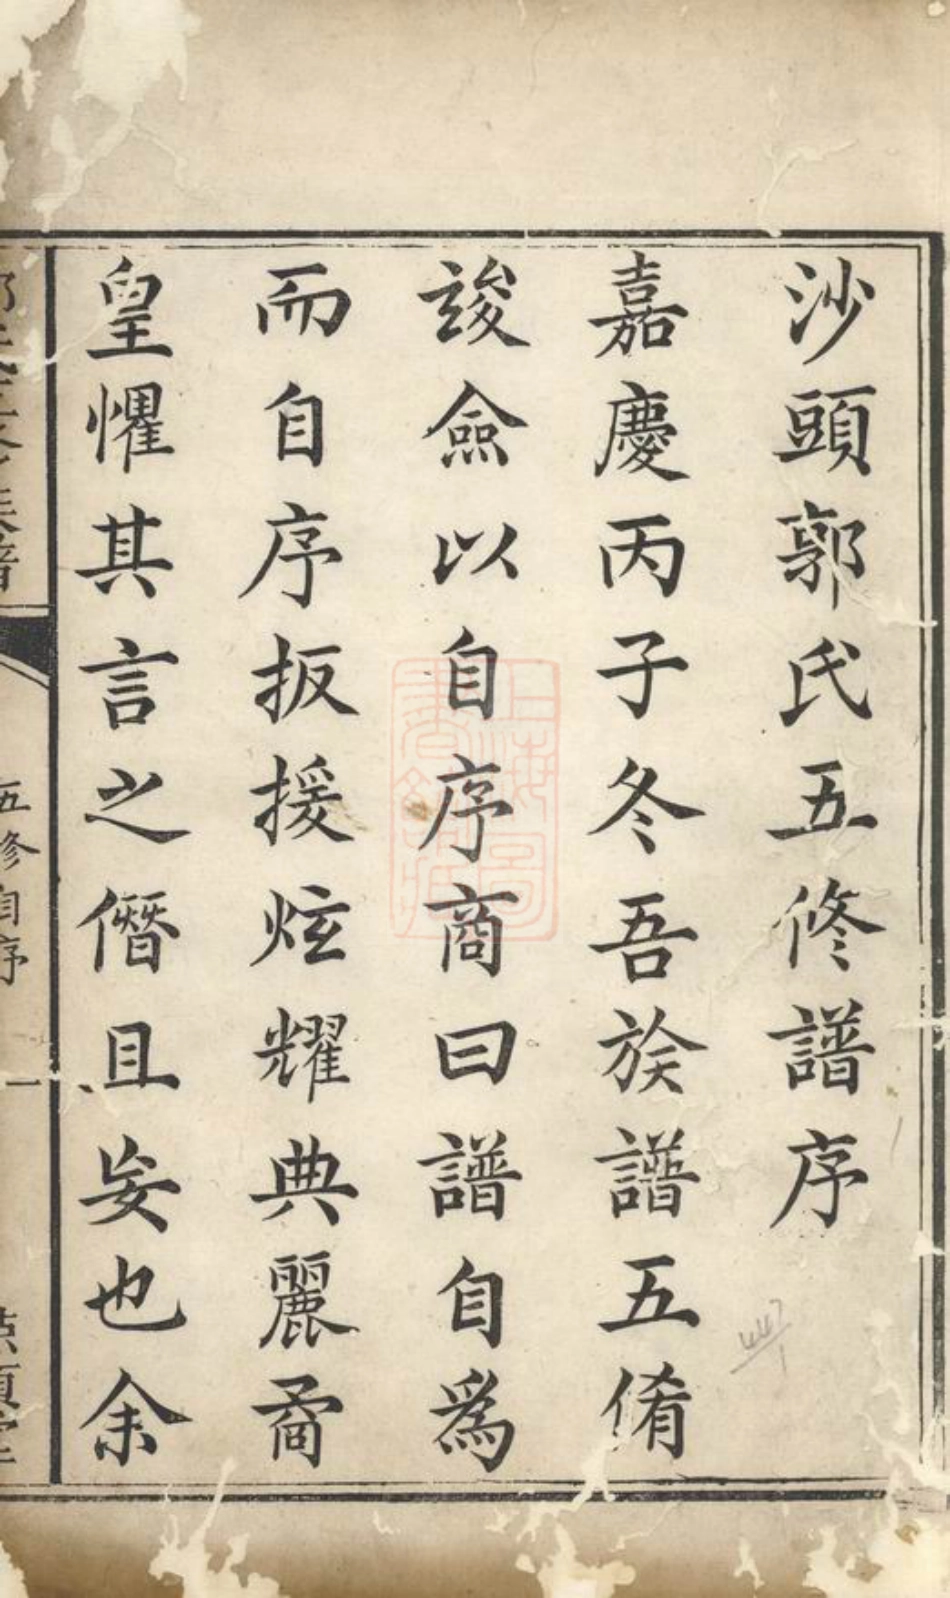 沙頭郭氏五修譜序
嘉慶丙子冬吾族譜五脩
竣僉以自序商曰譜自為
而自序扳援炫耀典麗矞
皇懼其言之僭且妄也余
五修自序
一
上海圖書館藏